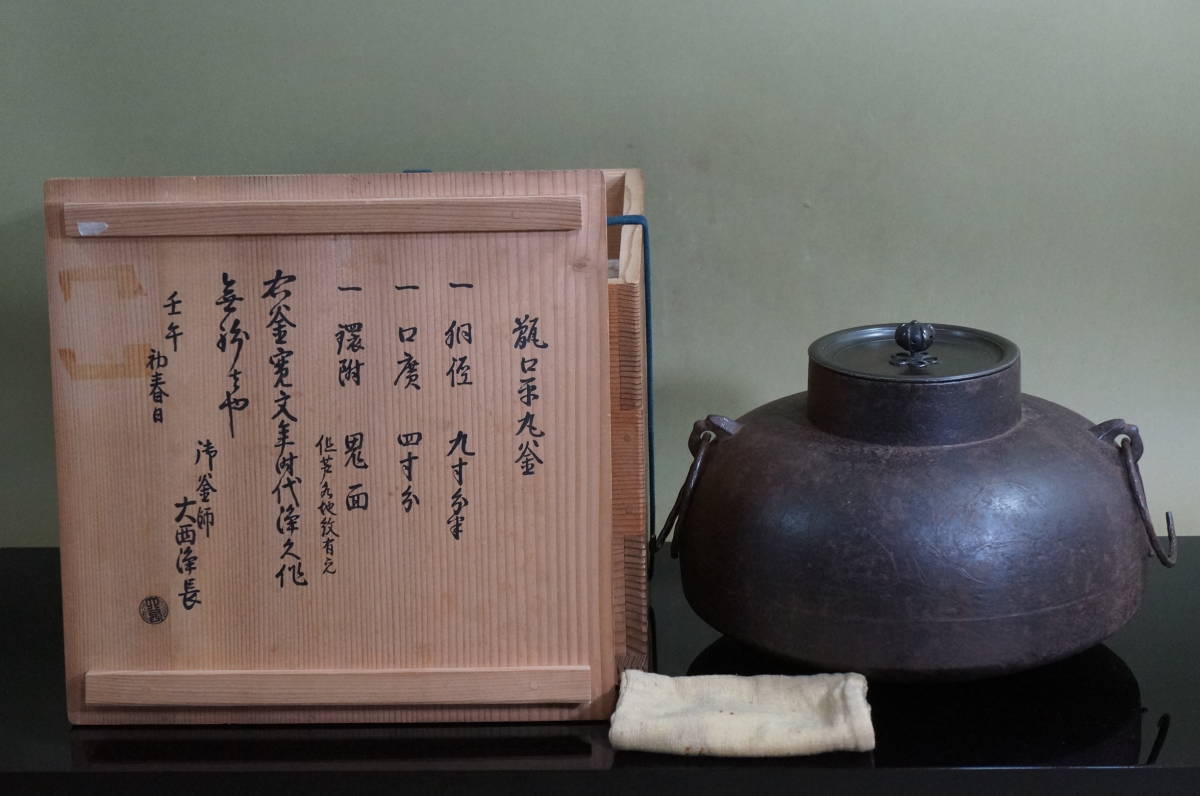 甑口平丸釜
一 胴径 九寸分半
一 口廣 四寸分
一 環附 鬼面
但芦屋地紋有之
右釜寛文年時代浄久作
無紛者也
壬午
初春日
御釜師
大西浄長